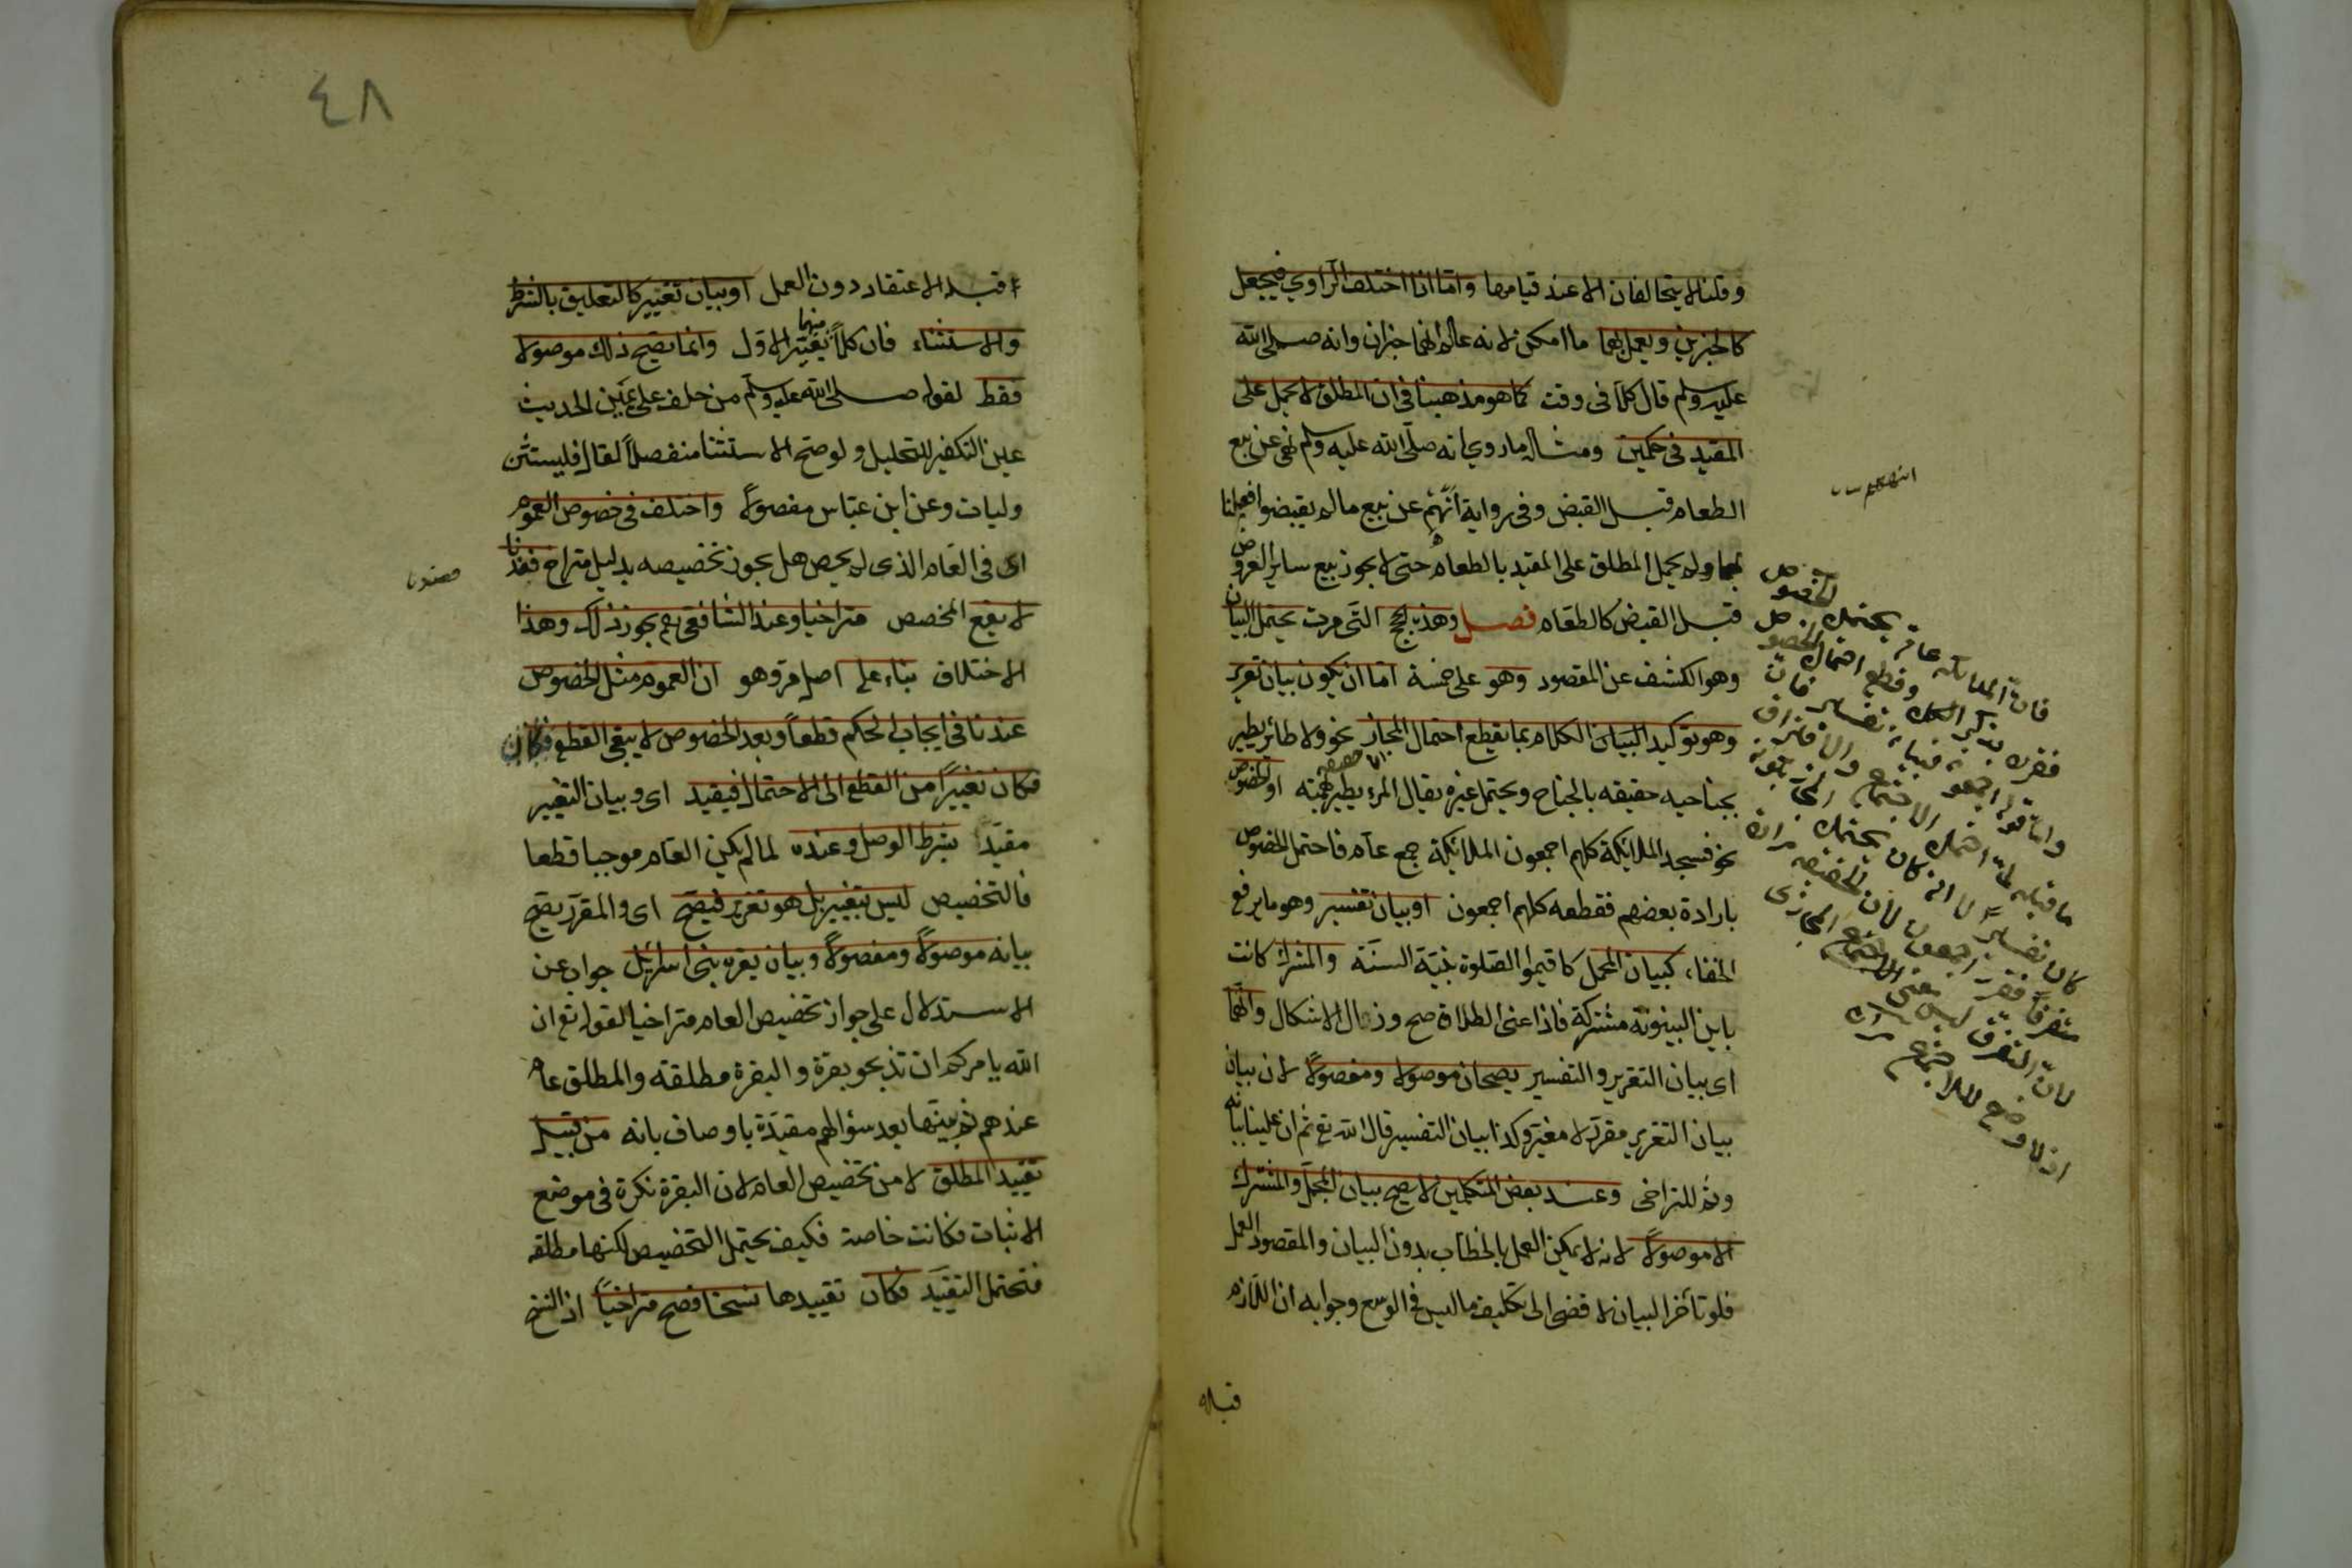 وقلنا لا يتحالفان الا عند قيامها واما اذا اختلف الراوي فيجعل
كالخبرين ويعمل بهما ما امكن لانه علم انهما خبران وانه صلى الله
عليه وسلم قال كلا في وقت كما هو مذهبنا في ان المطلق لا يحمل على
المقيد في حكمين ومثاله ما روي انه صلى الله عليه وسلم نهى عن بيع
الطعام قبل القبض وفي رواية انههم عن بيع ما لم يقبضوا فعملنا
بهما ولم يحمل المطلق على المقيد بالطعام حتى لا يجوز بيع ساير العروض
قبل القبض كالطعام فصل وهذه الحجج التي مرت يحتمل البيان
وهو الكشف عن المقصود وهو على خمسة اما ان يكون بيان تقرير
وهو توكيد البيان الكلام بما يقطع احتمال المجاز نحو ولا طائر يطير
بجناحيه حقيقه بالجناح ويحتمل غيره يقال المرء يطير بهمته او الخصوص
نحو فسجد الملائكة كلهم اجمعون الملائكة جمع عام فاحتمل الخصوص
بارادة بعضهم فقطعه كلهم اجمعون او بيان تفسير وهو ما يرفع
الخفاء كبيان المجمل كاقيموا الصلوة بينته السنة والمشترك كانت
باين البينونة مشتركة فاذا عنى الطلاق صح وزال الاشكال وانهما
اى بيان التقرير والتفسير يصحان موصولا ومفصولا لان بيان
بيان التقرير مقرر لا مغير وكذا بيان التفسير قال الله تع ثم ان علينا بيانه
وثم للتراخى وعند بعض المتكلمين لا يصح بيان المجمل والمشترك
الا موصولا لانه لا يمكن العمل بالخطاب بدون البيان والمقصود العمل
فلو تأخر البيان لافضى الى تكليف ما ليس في الوسع وجوابه ان اللازم
قبله
انتهى
فان الملائكة عام يحتمل الخصوص
فقرره بذكر الكل وقطع احتمال الخصوص
واما قوله اجمعون فبيان تفسير فان
ما قبله لما احتمل الاجتماع والافتراق
كان تفسيرا الا انه كان يحتمل المجاز
٤٨
قبله الاعتقاد دون العمل او بيان تغيير كالتعليق بالشرط
والاستثناء فان كلا منهما يغير الاول وانما يصح ذلك موصولا
فقط لقوله صلى الله عليه وسلم من حلف على يمين الحديث
عين التكفير للتحليل ولو صح الاستثنا منفصلا لقال فليستثن
وليات وعن ابن عباس مفصولا واختلف في خصوص العموم
اى فى العام الذى لم يخص هل يجوز تخصيصه بدليل متراخ فعندنا
لا يقع المخصص متراخيا وعند الشافعي يجوز ذلك وهذا
الاختلاف بناء على اصل مر وهو ان العموم مثل الخصوص
عندنا فى ايجاب الحكم قطعا وبعد الخصوص لا يبقى القطع فكان
فكان تغييرا من القطع الى الاحتمال فيقيد اى وبيان التغيير
مقيد بشرط الوصل وعنده لما لم يكن العام موجبا قطعا
فالتخصيص ليس بتغيير بل هو تقرير فيصح اى والمقرر يصح
بيانه موصولا ومفصولا وبيان بقرة بنى اسرائيل جواب عن
الاستدلال على جواز تخصيص العام متراخيا لقوله تع ان
الله يامركم ان تذبحو بقرة والبقرة مطلقه والمطلق عام
عندهم ثم بينها بعد سؤالهم مقيدة باوصاف بانه من قبيل
تقييد المطلق لا من تخصيص العام لان البقرة نكرة في موضع
الاثبات فكانت خاصة فكيف يحتمل التخصيص لكنها مطلقه
فتحتمل التقييد فكان تقييدها نسخا فصح متراخيا اذ النسخ